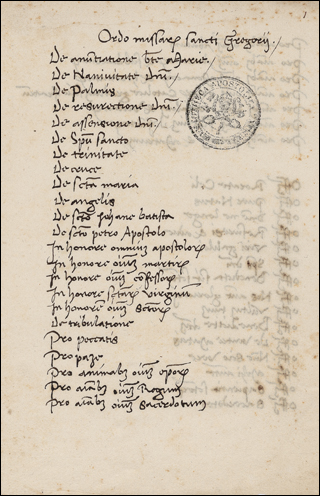 Ordo missarꝝ sancti Gregorii./
De anu̅tiatione bte Marie./
De Nanivitate dnī./
De Palmis
De resurectione dnī./
De assensione dnī./
De Spū sancto
De trinitate
De cruce
De sctā maria
De angelis
De sctō Johane batista
De sctō petro Apostolo
In honore omniuȝ apostoloꝝ
In honore oiuȝ martirꝝ
In honore oiuȝ confessoꝝ
In honore sctarꝝ virginuȝ
In honore oiuȝ Sctorꝝ
De tribulatione
Pro peccatis
Pro paze
Pro animabȝ oiuȝ eporꝝ
Pro aiābȝ oiuȝ Regum
Pro aiābȝ oiuȝ Sacerdotum